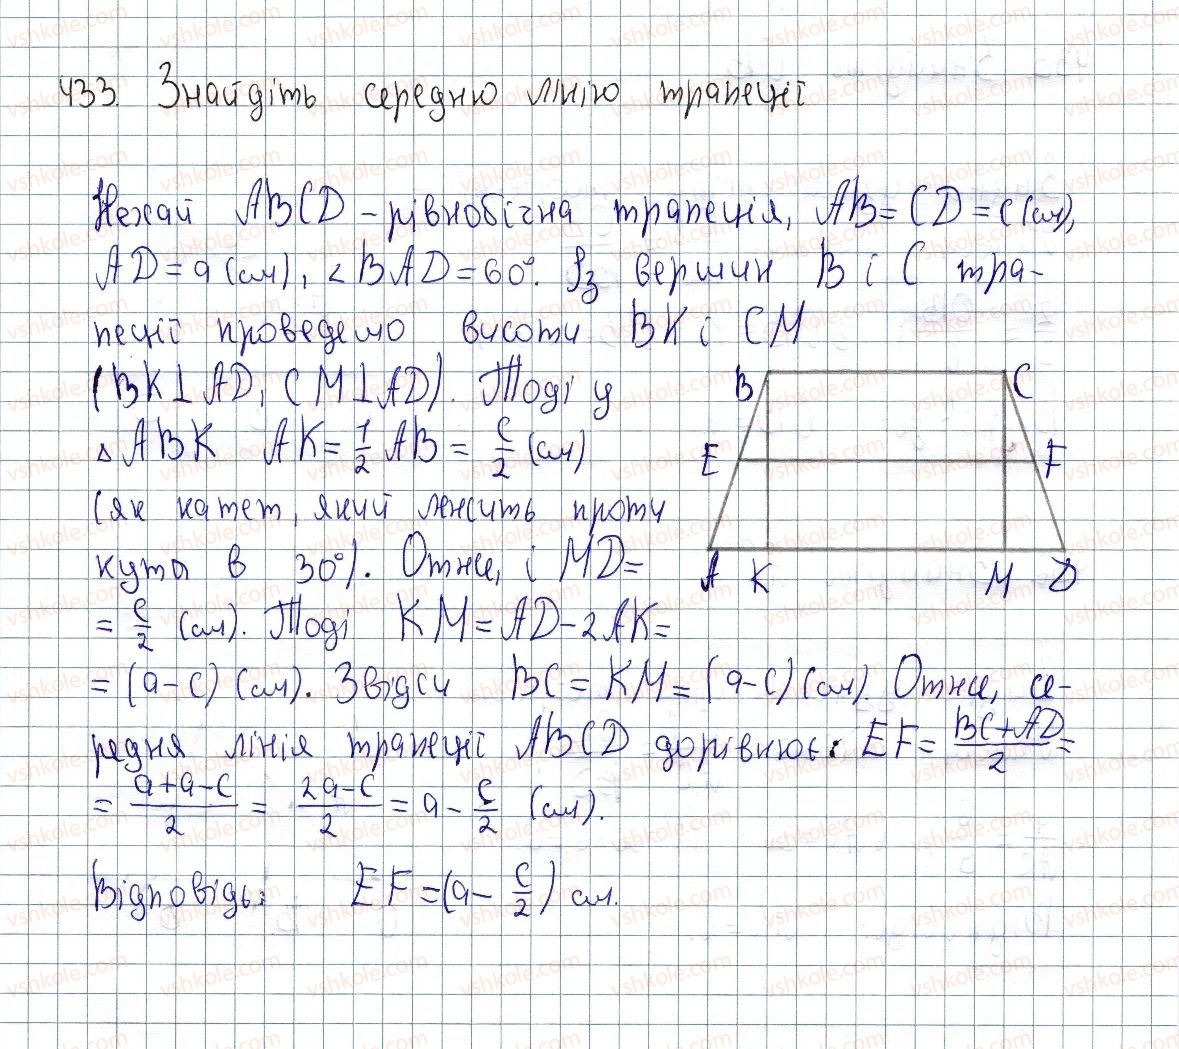 433. Знайдіть середню лінію трапеції
Нехай ABCD - рівнобічна трапеція, AB = CD = c (см),
AD = a (см), ∠BAD = 60°. Із вершин B і C тра-
пеції проведемо висоти BK і CM
(BK⊥AD, CM⊥AD). Тоді у
△ABK AK = 1/2 AB = c/2 (см)
(як катет, який лежить проти
кута в 30°). Отже, і MD =
= c/2 (см). Тоді KM = AD - 2AK =
= (a - c) (см). Звідси BC = KM = (a - c) (см). Отже, се-
редня лінія трапеції ABCD дорівнює: EF = (BC + AD)/2 =
= (a + a - c)/2 = (2a - c)/2 = a - c/2 (см).
Відповідь: EF = (a - c/2) см.
B C
E F
A K M D